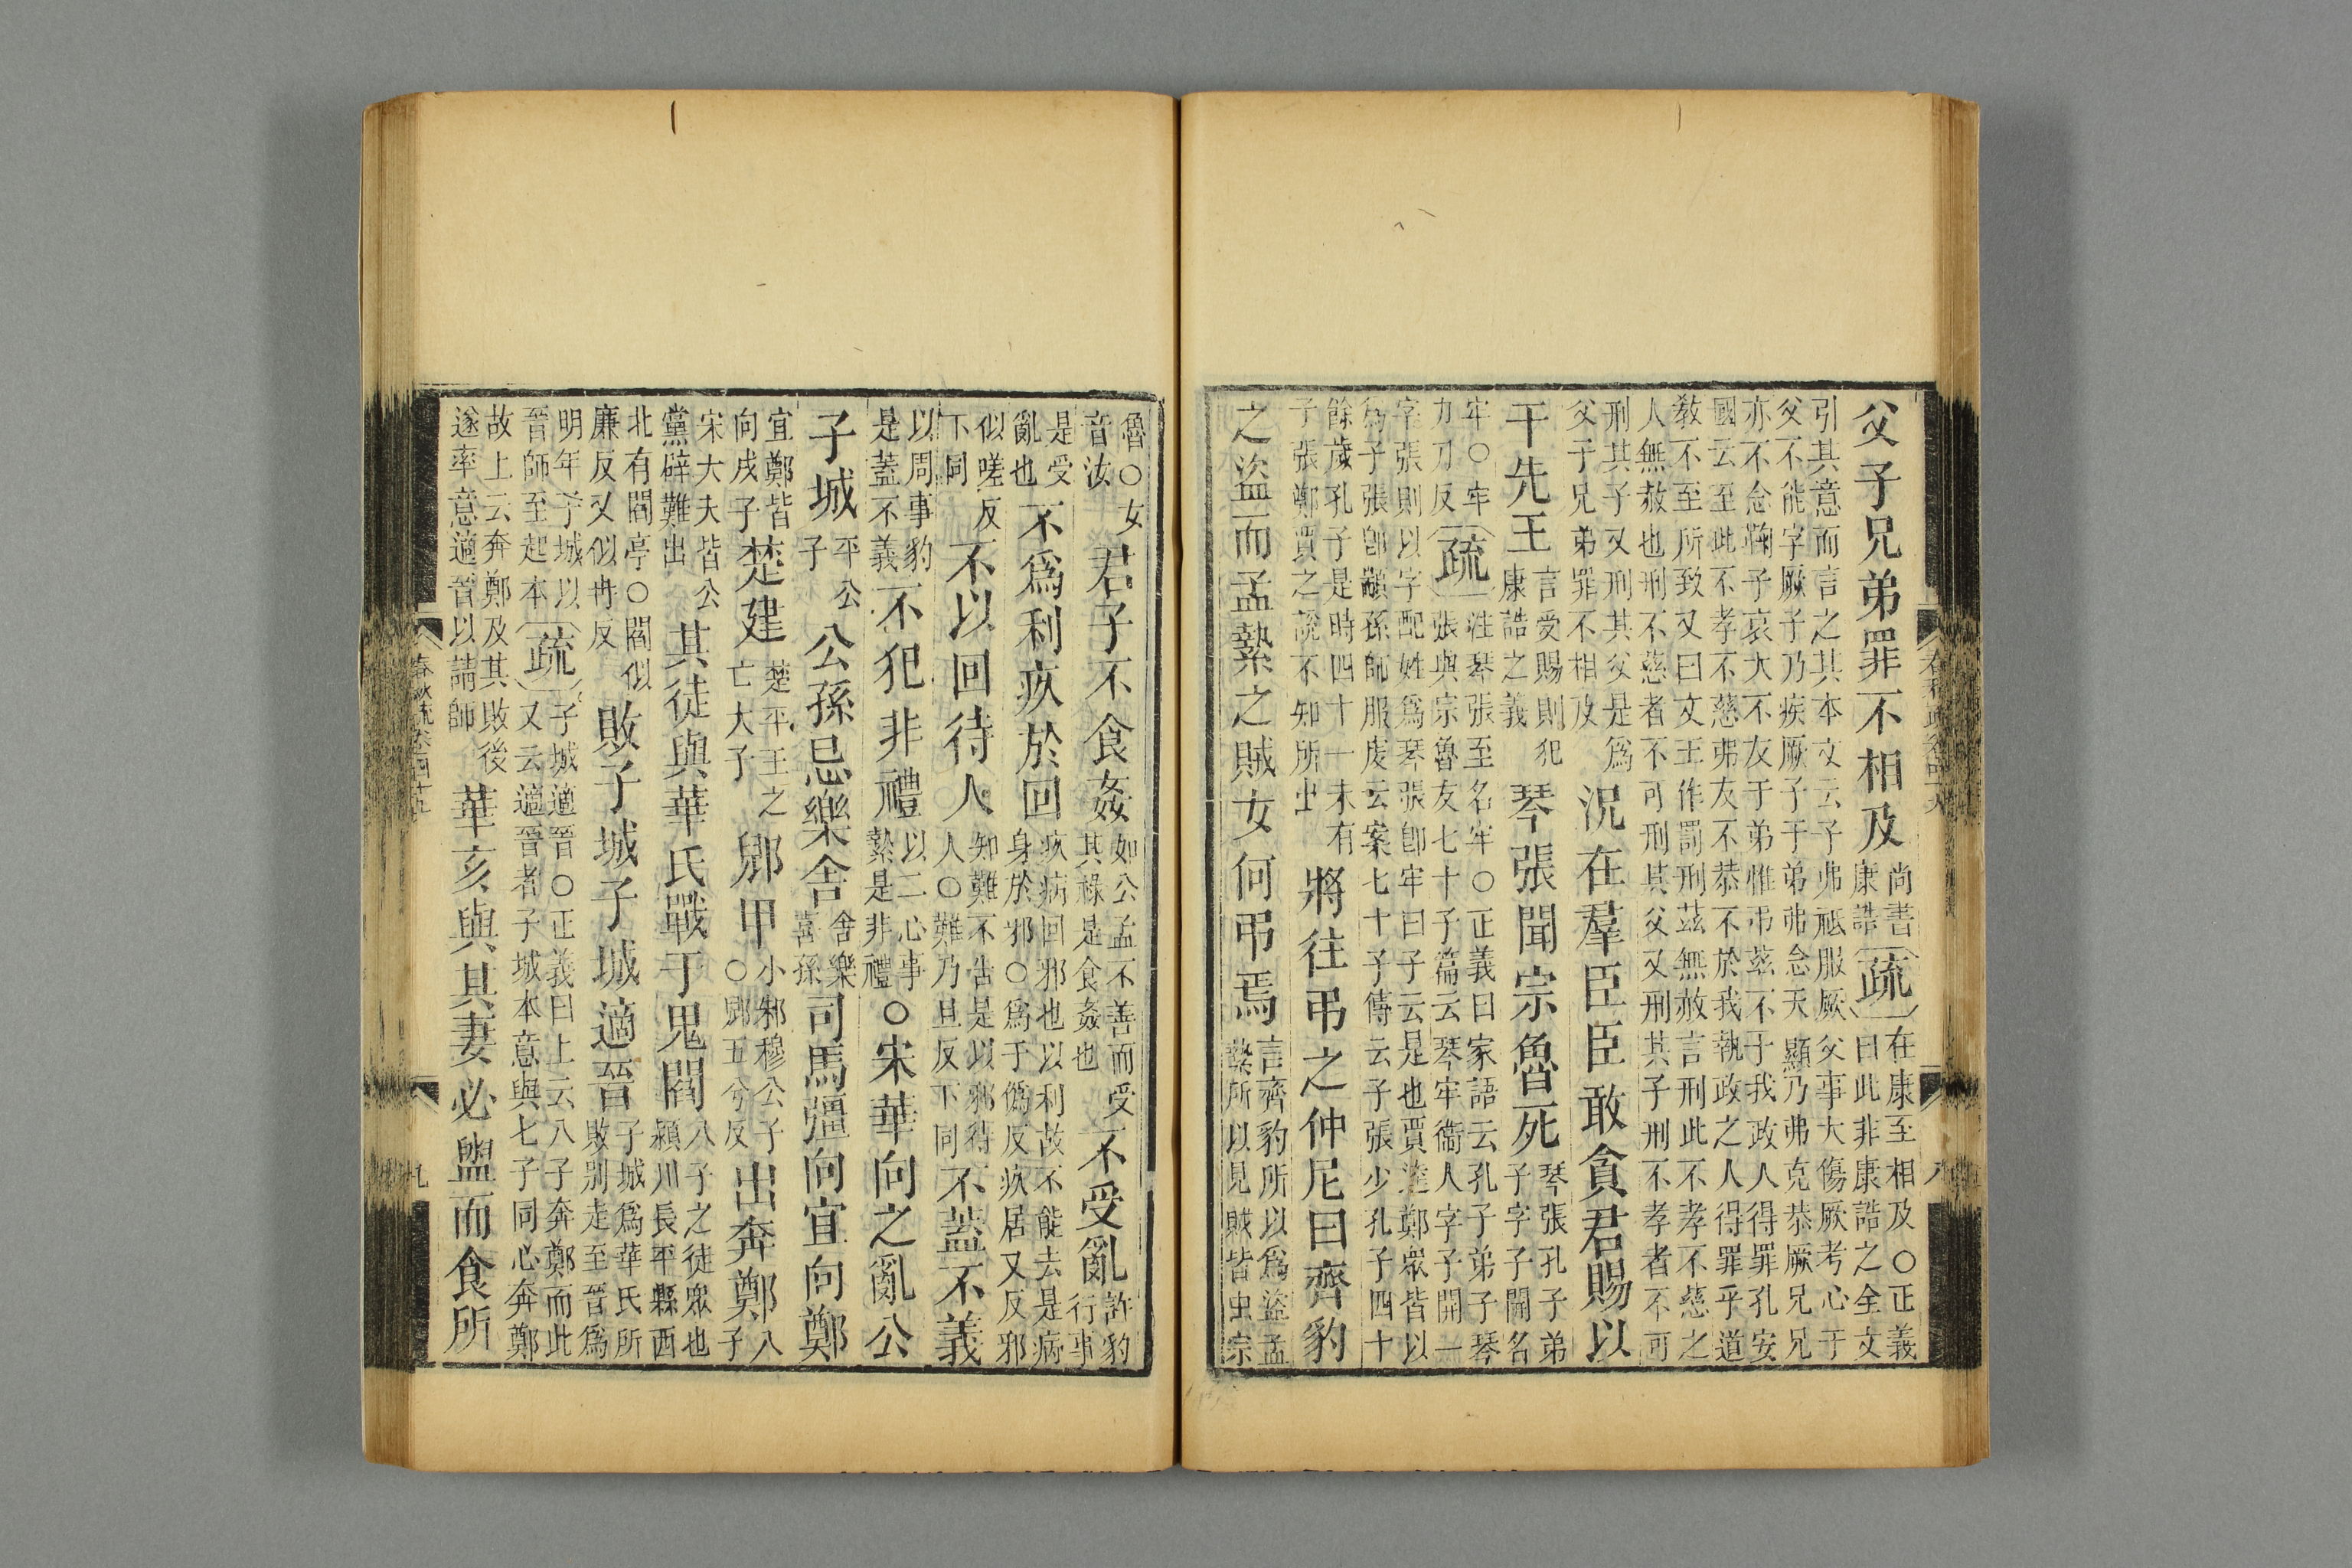 父子兄弟罪不相及尚書康誥疏在康至相及○正義曰此非康誥之全文
引其意而言之其本文云子弗祗服厥父事大傷厥考心于
父不能字厥子乃疾厥子于弟弗念天顯乃弗克恭厥兄兄
亦不念鞠子哀大不友于弟惟弔茲不于我政人得罪孔安
國云至此不孝不慈弗友不恭不於我執政之人得罪乎道
教不至所致又曰文王作罰刑茲無赦言刑此不孝不慈之
人無赦也刑不慈者不可刑其父又刑其子刑不孝者不可
刑其子又刑其父是爲父子兄弟罪不相及況在羣臣臣敢貪君賜以
干先王言受賜則犯康誥之義琴張聞宗魯死琴張孔子弟子字子開名
牢○牢力刀反疏注琴張至名牢○正義曰家語云孔子弟子琴張與宗魯友七十子篇云琴牢衞人字子開一
字張則以字配姓爲琴張卽牢曰子云是也賈逵鄭眾皆以
爲子張卽顓孫師服虔云案七十子傳云子張少孔子四十
餘歲孔子是時四十一未有子張鄭賈之說不知所出將往弔之仲尼曰齊豹
之盜而孟縶之賊女何弔焉言齊豹所以爲盜孟縶所以見賊皆由宗
魯○女音汝君子不食姦如公孟不善而受其祿是食姦也不受亂許豹行事
是受亂也不爲利疚於回疚病回邪也以利故不能去是病身於邪○爲于僞反疚居又反邪
似嗟反下同不以回待人知難不告是以邪待人○難乃旦反下同不蓋不義
以周事豹是蓋不義不犯非禮以二心事縶是非禮○宋華向之亂公
子城平公子公孫忌樂舍舍樂喜孫司馬彊向宜向鄭
宜鄭皆向戌子楚建楚平王之亡大子郳甲小邾穆公子○郳五兮反出奔鄭八子
宋大夫皆公黨辟難出其徒與華氏戰于鬼閻八子之徒眾也潁川長平縣西
北有閻亭○閻似廉反又似冉反敗子城子城適晉子城爲華氏所敗别走至晉爲
明年子城以晉師至起本疏子城適晉○正義曰上云八子奔鄭而此又云適晉者子城本意與七子同心奔鄭
故上云奔鄭及其敗後遂率意適晉以請師華亥與其妻必盥而食所
春秋疏卷四十九 九